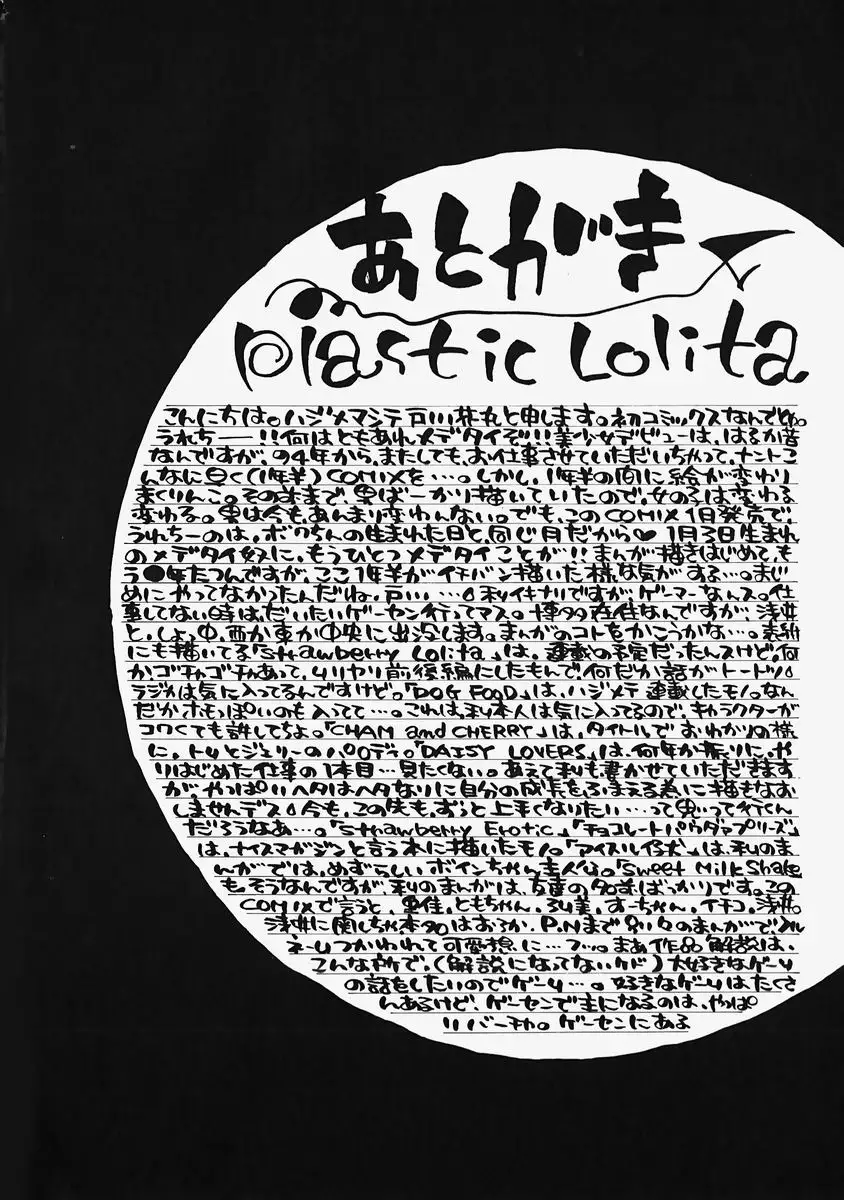 あとがき
Plastic Lolita
こんにちは。ハジメマシテ戸川 と申します。初コミックスなんでとぉ。
うれちー──!!何はともあれメデタイぞ!!美少女デビューは、はるか昔
なんですが の4年から、またしても、お仕事させていただいちゃって、ナント
んなに早く(1年半)COMIXを…。しかし、1年半の間に絵が変わり
まくりんこ。その前まで、男ばーかり描いていたので、女の子は変わる
変わる。男は今も、あんまり変わんない。でも、このCOMIX1月発売で、
うれちーのは、ボクちんの生まれた日と、同じ月だから♥1月3日生まれ
のメデタイ奴に、もうひとつメデタイことが!!まんが描きはじめて、も
う●年たつんですが、ここ1年半がイチバン描いた様な気がする…。まじ
めにやってなかったんだね、戸川… イキナリですがゲーマーなんス。仕
事してない時は、だいたいゲーセン行ってマス。博多在住なんですが、浅井
と、しょっ中、西か東か中央に出没します。まんがのコトをかこうかな…。表紙
にも描いてる「Strawberry Lolita」は、連載の予定だったんスけど、何
かゴチャゴチャあって、ムリヤリ前後編にしたもんで、何だか話がトートツ。
ラジカは気に入ってるんですけど。「DOG FOOD」は、ハジメテ連載したモノ。なん
だかホモっぽいのも入ってて…。これは、私本人は気に入ってるので、キャラクターが
コワくても許してちょ。「CHAM and CHERRY」は、タイトルでおわかりの様
に、トムとジェリーのパロディ。「DAISY LOVERS」は、何年か振りに、や
りはじめた仕事の1本目…見たくない。あえて私も書かせていただきます
が、やっぱいヘタはヘタなりに自分の成長をふまえる為に描きなお
しませんデス 今も、この先も、ずっと上手くなりたい…って思いって行くん
だろうなあ…。「Strawberry Erotic」「チョコレートパウダァプリーズ」
は、ナイスマガジンと言う本に描いたモノ。「アイスルイ子犬」は、私のま
んがでは、めずらしいボインちゃん主人公。「Sweet Milk Shake
もそうなんですが、私のまんがは、友達の名前ばっかりです。この
COMIXで言うと、 佳、ともちゃん、 美、すーちゃん、イチコ、浅井。
浅井に関しちゃ本名はおろか、P.Nまで別々のまんがで、
えームつかわれて可愛想に…フッ…。まあ作品解説は、
こんな所で、(解説になってないケド)大好きなゲーム
の話をしたいのでゲーム…。好きなゲームはたくさ
んあるけど、ゲーセンで主になるのは、やっぱ
りバーチャ。ゲーセンにある